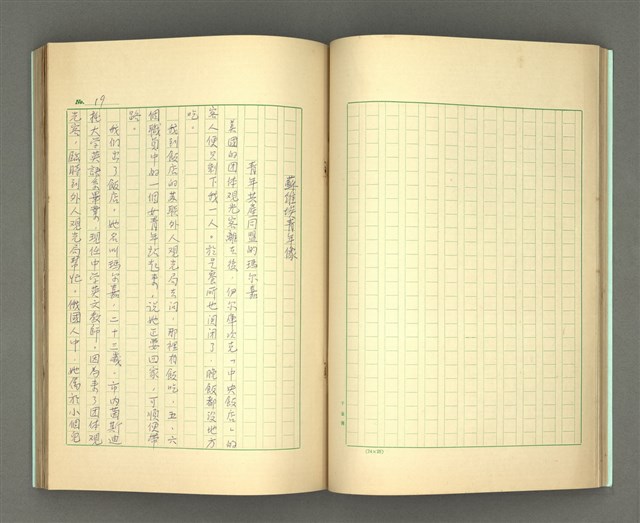 No. 19
蘇維埃青年像
青年共產同盟的瑪尔嘉
美國的团体观光客離去後，伊尔庫次克「中央飯店」的
客人便只剩下我一人。於是餐所也関閉了，晚飯都沒地方
吃。
我到飯店的苏联外人观光局去问，那裡有飯吃，五、六
個職員中的一個女青年站起來，说她正要回家，可順便帶
路。
我们出了飯店。她名叫瑪尔嘉，二十三歲。市内茵斯迪
托大学英語系畢業，現任中学英文教師。因為來了团体观
光客，臨時到外人观光局幫忙。俄国人中，她属於小個兒
(24×25)